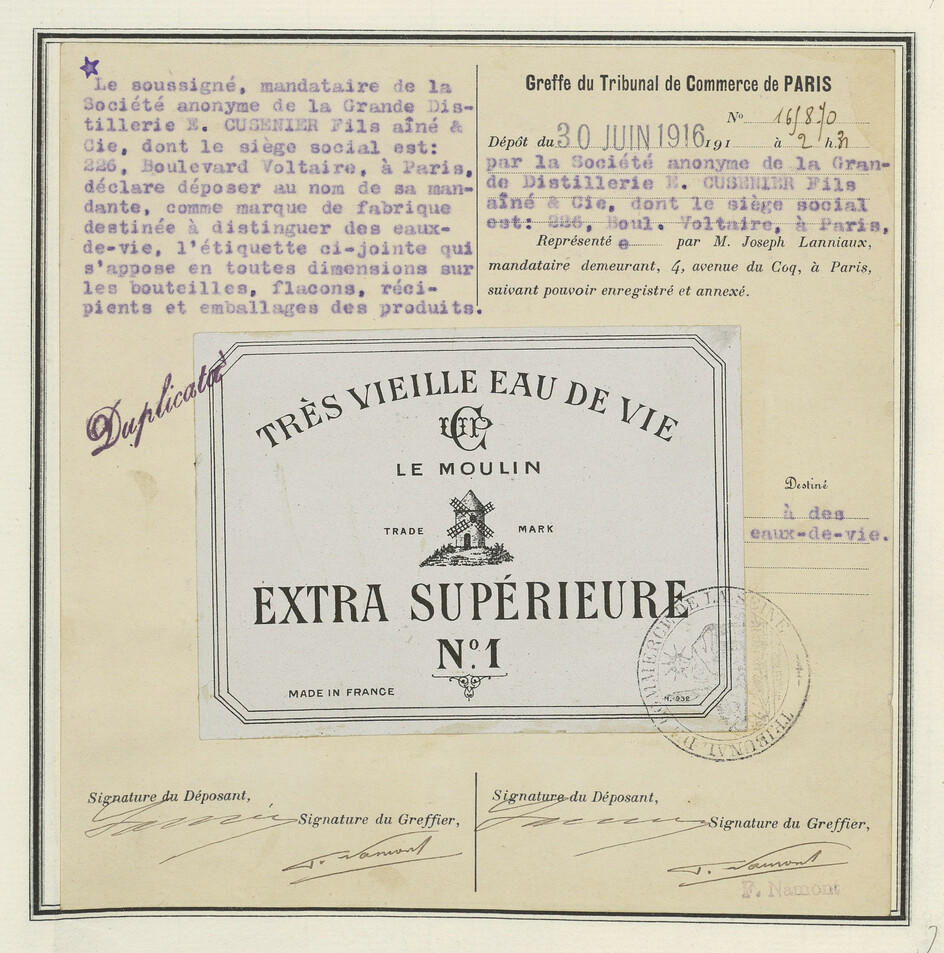 Le soussigné, mandataire de la
Société anonyme de la Grande Dis-
tillerie E. CUSENIER Fils aîné &
Cie, dont le siège social est:
226, Boulevard Voltaire, à Paris,
déclare déposer au nom de sa man-
dante, comme marque de fabrique
destinée à distinguer des eaux-
de-vie, l'étiquette ci-jointe qui
s'appose en toutes dimensions sur
les bouteilles, flacons, réci-
pients et emballages des produits.
Greffe du Tribunal de Commerce de PARIS
No 16/870
Dépôt du 30 JUIN 1916 191 à 2 h. 31
par la Société anonyme de la Gran-
de Distillerie E. CUSENIER Fils
aîné & Cie, dont le siège social
est: 226, Boul. Voltaire, à Paris,
Représentée par M. Joseph Lanniaux,
mandataire demeurant, 4, avenue du Coq, à Paris,
suivant pouvoir enregistré et annexé.
Duplicata
TRÈS VIEILLE EAU DE VIE
LE MOULIN
TRADE MARK
EXTRA SUPÉRIEURE
No. 1
MADE IN FRANCE
N. 932
Destiné
à des
eaux-de-vie.
TRIBUNAL DE COMMERCE DE LA SEINE
Signature du Déposant,
Signature du Greffier,
F. Namont
Signature du Déposant,
Signature du Greffier,
F. Namont
F. Namont